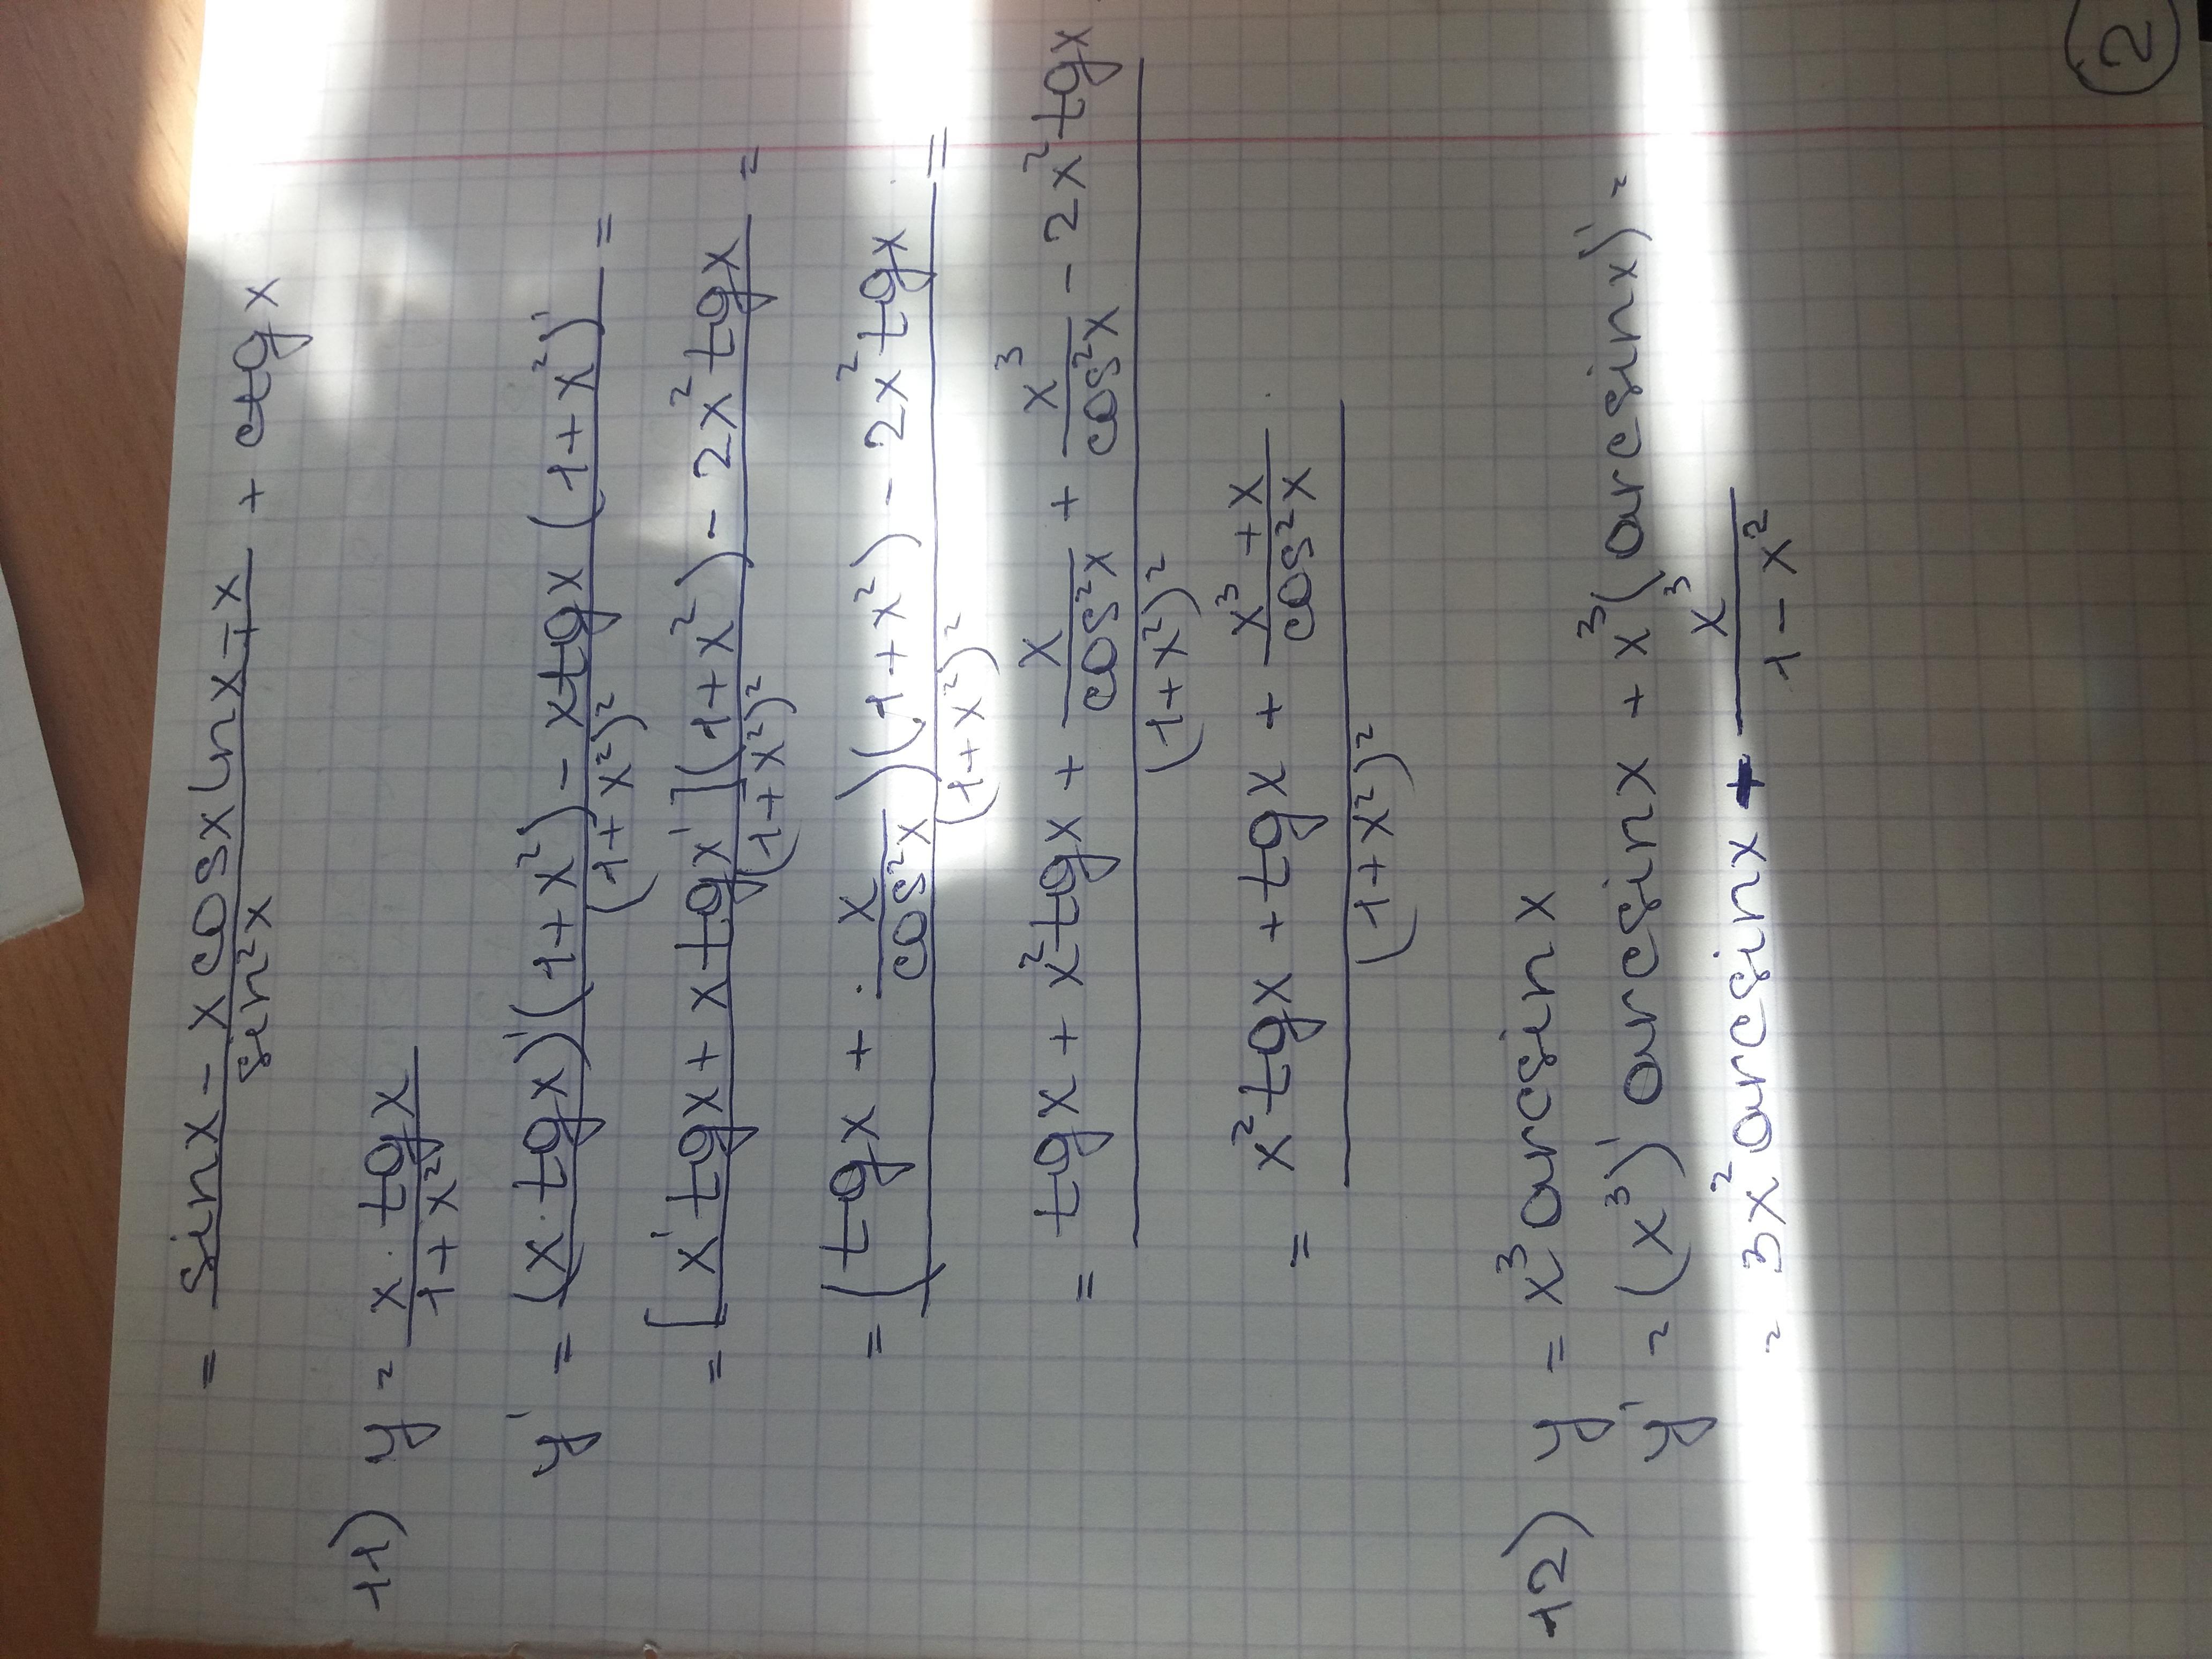 = (sinx - x cosx lnx - x)/(sin²x) + ctgx
11) y = (x · tgx)/(1 + x²)
y' = ((x · tgx)'(1 + x²) - xtgx (1 + x²)')/((1 + x²)²) =
= ([x' tgx + x tgx'](1 + x²) - 2x² tgx)/((1 + x²)²) =
= ((tgx + x/(cos²x))(1 + x²) - 2x² tgx)/((1 + x²)²) =
= (tgx + x² tgx + x/(cos²x) + x³/(cos²x) - 2x² tgx)/((1 + x²)²)
= (x² tgx + tgx + (x³ + x)/(cos²x))/((1 + x²)²)
12) y = x³ arcsinx
y' = (x³)' arcsinx + x³ (arcsinx)' =
= 3x² arcsinx + x³/(1 - x²)
2